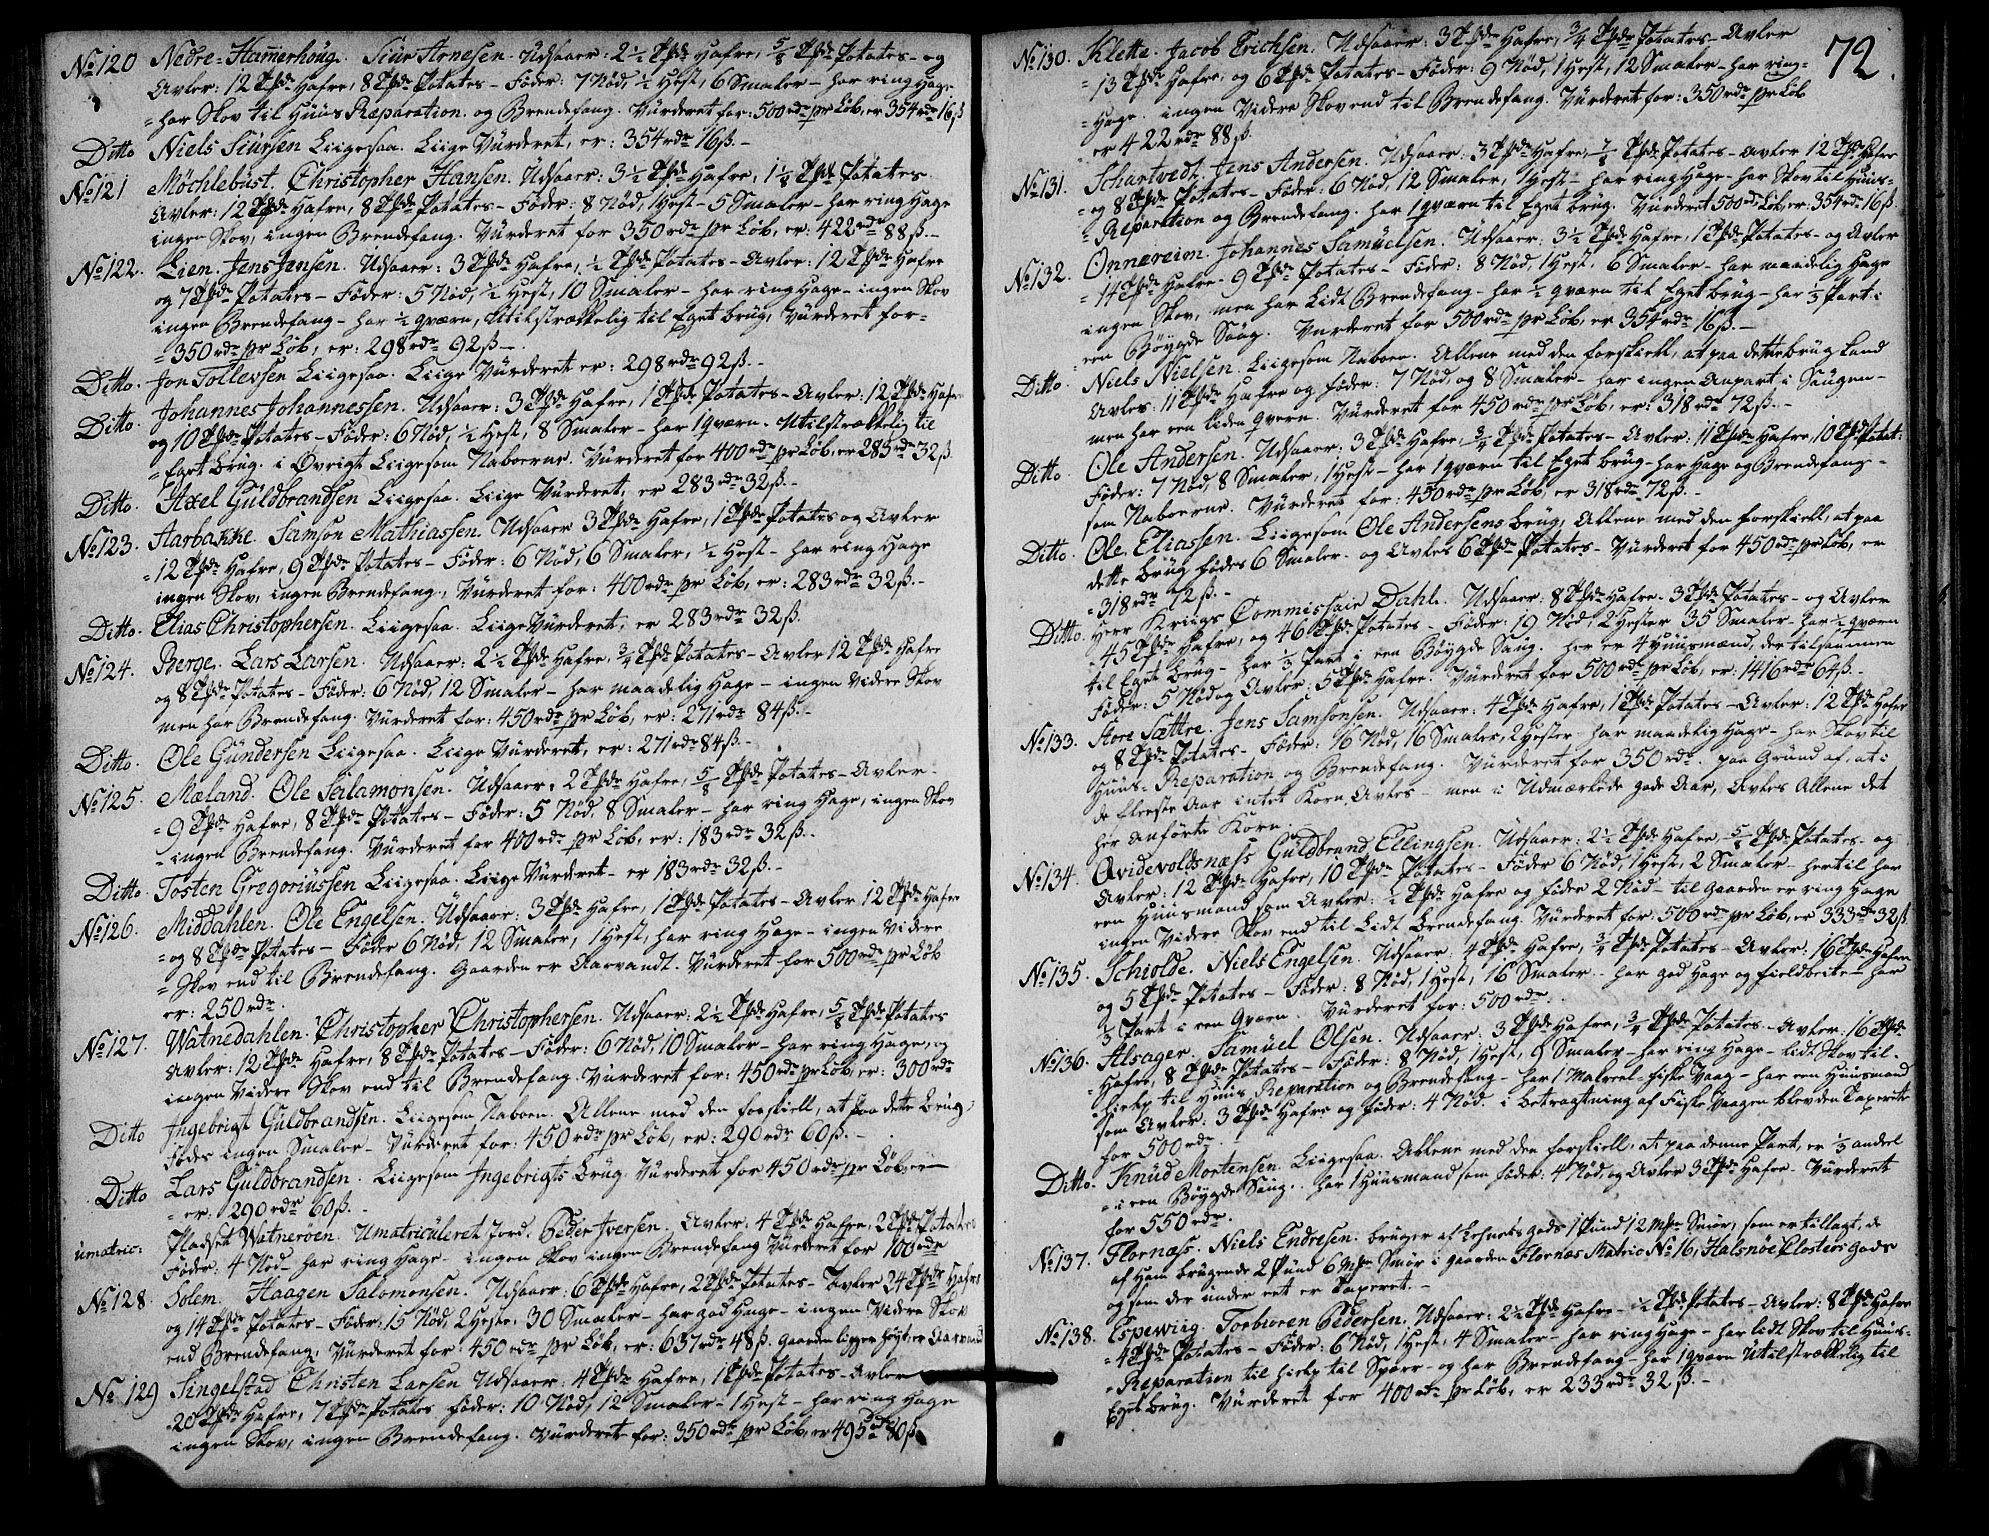 No 120 Nedre-Hamerhoug. Siur Arnesen. Udsaaer: 2½ Tønde Hafre, 5/8 Tønde Potates – og
Avler: 12 Tønde Hafre, 8 Tønde Potates – Föder: 7 Nöd, ½ Hest, 6 Smaler – har ring Hage
har Skov til Huus Reparation og Brendefang. Vürderet for: 500 rdr pr Löb, er 354 rdr 16 ß
Ditto Niels Siursen Liigesaa. Liige Vürderet, er: 354 rdr 16 ß.–
No 121 Möchlebust. Christopher Hansen. Udsaaer: 3½ Tønde Hafre, 1 Tønde Potates
Avler: 12 Tønde Hafre, 8 Tønde Potates – Föder: 8 Nöd, 1 Hest – 5 Smaler – har ring Hage
ingen Skov, ingen Brendefang. Vürderet for 350 rdr pr Löb, er: 422 rdr 88 ß.–
No 122. Lien. Jens Jensen. Udsaaer: 3 Tønde Hafre, ½ Tønde Potates – Avler: 12 Tønde Hafre
og 7 Tønde Potates – Föder: 5 Nöd, ½ Hest, 10 Smaler – har ring Hage – ingen Skov
ingen Brendefang – har ½ qværn, Utilstrækkelig til Eget brug, Vürderet for=
=350 rdr pr Löb, er: 298 rdr 92 ß –
Ditto. Jon Tollevsen Liigesaa. Liige Vürderet er: 298 rdr 92 ß.–
Ditto. Johannes Johannessen. Udsaaer: 3 Tønde Hafre, 1 Tønde Potates – Avler: 12 Tønde Hafre
og 10 Tønde Potates – Föder: 6 Nöd, ½ Hest, 8 Smaler – har 1 qværn – Utilstrækkelig til
Eget brug. i Övrigt Liigesom Naboerne. Vürderet for 400 rdr pr Löb, er 283 rdr 32 ß
Ditto. Axel Guldbrandsen Liigesaa. Liige Vürderet, er 283 rdr 32 ß.–
No 123. Aarbakke. Samson Mathiassen. Udsaaer 3 Tønde Hafre, 1 Tønde Potates og Avler
=12 Tønde Hafre, 9 Tønde Potates – Föder: 6 Nöd, 6 Smaler, ½ Hest – har ring Hage
ingen Skov, ingen Brendefang, Vürderet for: 400 rdr pr Löb, er: 283 rdr 32 ß.–
Ditto. Elias Christophersen. Liigesaa. Liige Vürderet, er 283 rdr 32 ß.
No 124. Berge. Lars Larsen. Udsaaer: 2½ Tønde Hafre, ¾ Tønde Potates – Avler 12 Tønde Hafre
og 8 Tønde Potates – Föder: 6 Nöd, 12 Smaler – har maadelig Hage – ingen Videre Skov
men har Brendefang. Vürderet for: 450 rdr pr Löb, er: 271 rdr 84 ß.–
Ditto. Ole Gundersen Liigesaa. Liige Vürderet, er: 271 rdr 84 ß.–
No 125. Mæland. Ole Salamonsen. Udsaaer: 2 Tønde Hafre, 5/8 Tønde Potates – Avler
=9 Tønde Hafre, 8 Tønde Potates – Föder: 5 Nöd, 8 Smaler – har ring Hage, ingen Skov
– ingen Brendefang. Vürderet for 400 rdr pr Löb, er: 183 rdr 32 ß.–
Ditto. Tosten Gregoriussen Liigesaa. Liige Vürderet – er 183 rdr 32 ß.–
No 126. Middahlen. Ole Engelsen. Udsaaer: 3 Tønde Hafre, 1 Tønde Potates – Avler 12 Tønde Hafre
=og 8 Tønde Potates – Föder 6 Nöd, 12 Smaler, 1 Hest, har ring Hage – ingen Videre
= Skov end til Brendefang. Gaarden er Aarvandt. Vürderet for 500 rdr pr Löb
er: 250 rdr.
No 127. Watnedahlen. Christopher Christophersen. Udsaaer: 2½ Tønde Hafre, 5/8 Tønde Potates
Avler: 12 Tønde Hafre, 8 Tønde Potates – Föder: 6 Nöd, 10 Smaler – har ring Hage, og
ingen Videre Skov end til Brendefang. Vürderet for: 450 rdr pr Löb, er: 300 rdr
Ditto Ingebrigt Guldbrandsen. Liigesom Naboen. Allene med den forskiell, at paa dette brug
födes ingen Smaler – Vürderet for: 450 rdr pr Löb, er: 290 rdr 60 ß.–
Ditto Lars Guldbrandsen. Liigesom Ingebrigts brug Vürderet for 450 rdr pr Löb, er
= er: 290 rdr 60 ß.–
umatric: Pladset Watneröen. Umatriculeret jord. Peder Iversen. Avler: 4 Tønde Hafre, 2 Tønde Potates
Föder: 4 Nöd – har ring Hage – ingen Skov ingen Brendefang Vürderet for 100 rdr
No 128. Solem. Haagen Salomonsen. Udsaaer: 6 Tønde Hafre, 2 Tønde Potates – Avler 24 Tønde Hafre
og 14 Tønde Potates – Föder: 15 Nöd, 2 Hester, 30 Smaler – har god Hage – ingen Videre Skov
end Brendefang, Vürderet for 450 rdr pr Löb, er: 637 rdr 48 ß. Gaarden ligger höyt, er Aarvand
No 129 Singelstad Christen Larsen Udsaaer: 4 Tønde Hafre, 1 Tønde Potates – Avler
=20 Tønde Hafre, 7 Tønde Potates föder: 10 Nöd, 12 Smaler – 1 Hest – har ring Hage
ingen Skov, ingen Brendefang. Vürderet for: 350 rdr pr Löb, er 495 rdr 80 ß.
72.
No 130. Klette. Jacob Erichsen. Udsaaer: 3 Tønde Hafre, ¾ Tønde Potates – Avler
=13 Tønde Hafre, og 6 Tønde Potates – Föder: 9 Nöd, 1 Hest, 12 Smaler – har ring=
=Hage. ingen Videre Skov end til Brendefang. Vürderet for: 350 rdr pr Löb
er 422 rdr 88 ß.
No 131. Schartvedt. Jens Andersen. Udsaaer: 3 Tønde Hafre, Tønde Potates – Avler 12 Tønde Hafre
= og 8 Tønde Potates – Föder: 6 Nöd, 12 Smaler, 1 Hest – har ring Hage – har Skov til Huus-
= Reparation og Brendefang. har 1 qværn til Eget brug. Vürderet 500 rdr Löb er: 354 rdr 16 ß
No 132. Onnareim. Johannes Samuelsen. Udsaaer: 3½ Tønde Hafre, 1 Tønde Potates – og Avler
=14 Tønde Hafre – 9 Tønde Potates – Föder: 8 Nöd, 1 Hest, 6 Smaler – har maadelig Hage
ingen Skov, men har Lidt Brendefang – har ½ qværn til Eget brug – har ⅓ Part i
een Böygde Saug. Vürderet for 500 rdr pr Löb, er 354 rdr 16 ß.–
Ditto. Niels Nielsen. Liigesom Naboen. Allene med den forskiell, at paa dette brug kand
Avles: 11 Tønde Hafre og födes: 7 Nöd, og 8 Smaler – har ingen Anpart i Saugen –
men har een liden qvern. Vürderet for 450 rdr pr Löb, er: 318 rdr 72 ß.–
Ditto Ole Andersen. Udsaaer: 3 Tønde Hafre, ¾ Tønde Potates – Avler: 11 Tønde Hafre, 10 Tønde Potat:
Föder: 7 Nöd, 8 Smaler, 1 Hest – har 1 qværn til Eget brug – har Hage og Brendefang –
som Naboerne. Vürderet for: 450 rdr pr Löb, er 318 rdr 72 ß.–
Ditto. Ole Eliassen. Liigesom Ole Andersens brug, Allene med den forskiell, at paa
dette brug födes 6 Smaler – og Avles 6 Tønde Potates – Vürderet for 450 rdr pr Löb, er
=318 rdr 72 ß.–
Ditto. Herr Kriigs Commissair Dahl. Udsaaer: 8 Tønde Hafre – 3 Tønde Potates – og Avler
45 Tønde Hafre, og 46 Tønde Potates – Föder: 19 Nöd, 2 Hester 35 Smaler – har ½ qværn
til Eget brug – har ⅓ Part i een Böygde Saug. her er 4 Huusmænd, der tilsammen
Föder: 5 Nöd og Avler: 5 Tønde Hafre. Vürderet for 500 rdr pr Löb, er: 1416 rdr 64 ß.–
No 133. Store Sættre. Jens Samsonsen. Udsaaer: 4 Tønde Hafre, 1 Tønde Potates – Avler: 12 Tønde Hafre
og 8 Tønde Potates – Föder: 16 Nöd, 16 Smaler, 2 Hester har maadelig Hage – har Skov til
Huus-Reparation og Brendefang. Vürderet for 350 rdr. paa Grund af, at i
de fleeste Aar intet Korn Avles – men i Udmærkede gode Aar, Avles Allene det
her anförte Korn.
No 134. Qvidevoldsnæss Guldbrand Ellingsen. Udsaaer: 2½ Tønde Hafre – 5/8 Tønde Potates – og
Avler: 12 Tønde Hafre, 10 Tønde Potates – Föder 6 Nöd, 1 Hest, 2 Smaler – hertil har
een Huusmand som Avler: ½ Tønde Hafre og föder 2 Nöd – til Gaarden er ring Hage
ingen Videre Skov end til Lidt Brendefang. Vürderet for: 500 rdr pr Löb, er 333 rdr 32 ß
No 135. Schiolde. Niels Engelsen. Udsaaer 4 Tønde Hafre, ¾ Tønde Potates – Avler: 16 Tønde Hafre
og 5 Tønde Potates – Föder: 8 Nöd, 1 Hest, 16 Smaler – har god Hage og fieldbeite – har
⅓ Part i een Qværn. Vürderet for: 500 rdr.
No 136. Alsager. Samuel Olsen. Udsaaer: 3 Tønde Hafre, ¾ Tønde Potates – Avler: 16 Tønde
Hafre, 8 Tønde Potates – Föder: 8 Nöd, 1 Hest, 9 Smaler – har ring Hage – lidt Skov til
hielp til Huus Reparation og Brendefang – har 1 Makreel-fiske Vaag – har een Huusmand
som Avler: 3 Tønde Hafre og föder: 4 Nöd. i betragtning af Fiske Vaagen blev den Taxerete
for 500 rdr.
Ditto. Knud Mortensen. Liigesaa. Allene med den forskiell, at paa denne Part, er ⅓ andel
= i een Böygde Saug. har 1 Huusmand som föder: 4 Nöd, og Avler 3 Tønde Hafre – Vürderet
for 550 rdr.
No 137. Flornæss. Niels Endresen. bruger af Gods 1 Pund 12 Smör, som er tillagt, de
af Ham brugende 2 Pund 6 Smör i gaarden Flornæs Matric No 16, Halsnöe Closters Gods
og som der under eet er Taxeret.–
No 138. Espeviig. Torbiören Pedersen. Udsaaer: 2½ Tønde Hafre – ½ Tønde Potates – Avler: 8 Tønde Hafre
=4 Tønde Potates – Föder: 6 Nöd, 1 Hest, 4 Smaler – har ring Hage – har lidt Skov til Huus-
=Reparation til hielp til Spöer – og har Brendefang – har 1 qværn Utilstrækkelig til
Eget brug. Vürderet for 400 rdr pr Löb, er 233 rdr 32 ß.–